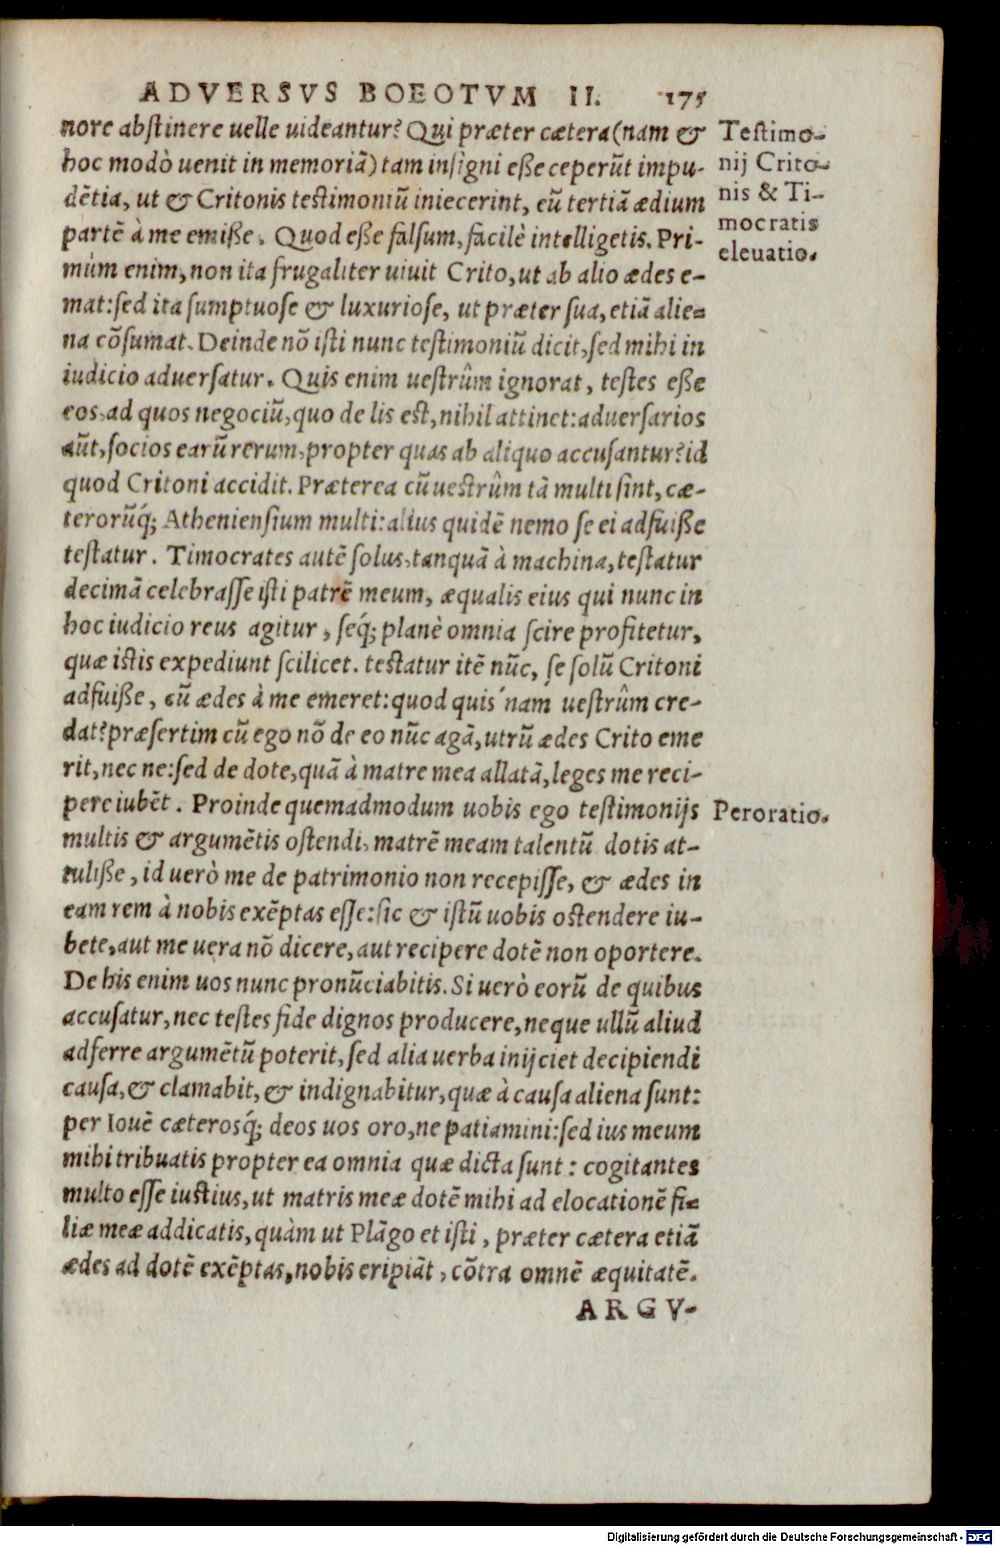 ADVERSVS BOEOTVM II. 175
nore abstinere uelle uideantur? Qui præter cætera (nam &
hoc modò uenit in memoriā) tam insigni eße ceperūt impu-
dētia, ut & Critonis testimoniū iniecerint, eū tertiā ædium
partē à me emiße. Quod eße falsum, facilè intelligetis. Pri-
mùm enim, non ita frugaliter uiuit Crito, ut ab alio ædes e-
mat: sed ita sumptuose & luxuriose, ut præter sua, etiā alie-
na cōsumat. Deinde nō isti nunc testimoniū dicit, sed mihi in
iudicio aduersatur. Quis enim uestrûm ignorat, testes eße
eos, ad quos negociū, quo de lis est, nihil attinet: aduersarios
aūt, socios earū rerum, propter quas ab aliquo accusantur? id
quod Critoni accidit. Præterea cū uestrûm tā multi sint, cæ-
terorūq́; Atheniensium multi: alius quidē nemo se ei adfuiße
testatur. Timocrates autē solus, tanquā à machina, testatur
decimā celebrasse isti patrē meum, æqualis eius qui nunc in
hoc iudicio reus agitur, seq́; planè omnia scire profitetur,
quæ istis expediunt scilicet. testatur itē nūc, se solū Critoni
adfuiße, cū ædes à me emeret: quod quis'nam uestrûm cre-
dat? præsertim cū ego nō de eo nūc agā, utrū ædes Crito eme
rit, nec ne: sed de dote, quā à matre mea allatā, leges me reci-
pere iubēt. Proinde quemadmodum uobis ego testimonijs
multis & argumētis ostendi, matrē meam talentū dotis at-
tuliße, id uerò me de patrimonio non recepisse, & ædes in
eam rem à nobis exēptas esse: sic & istū uobis ostendere iu-
bete, aut me uera nō dicere, aut recipere dotē non oportere.
De his enim uos nunc pronūciabitis. Si uerò eorū de quibus
accusatur, nec testes fide dignos producere, neque ullū aliud
adferre argumētū poterit, sed alia uerba inijciet decipiendi
causa, & clamabit, & indignabitur, quæ à causa aliena sunt:
per Iouē cæterosq́; deos uos oro, ne patiamini: sed ius meum
mihi tribuatis propter ea omnia quæ dicta sunt: cogitantes
multo esse iustius, ut matris meæ dotē mihi ad elocationē fi-
liæ meæ addicatis, quàm ut Plāgo et isti, præter cætera etiā
ædes ad dotē exēptas, nobis eripiāt, cōtra omnē æquitatē.
ARGV-
Testimo-
nij Crito-
nis & Ti-
mocratis
eleuatio.
Peroratio.
Digitalisierung gefördert durch die Deutsche Forschungsgemeinschaft - DFG